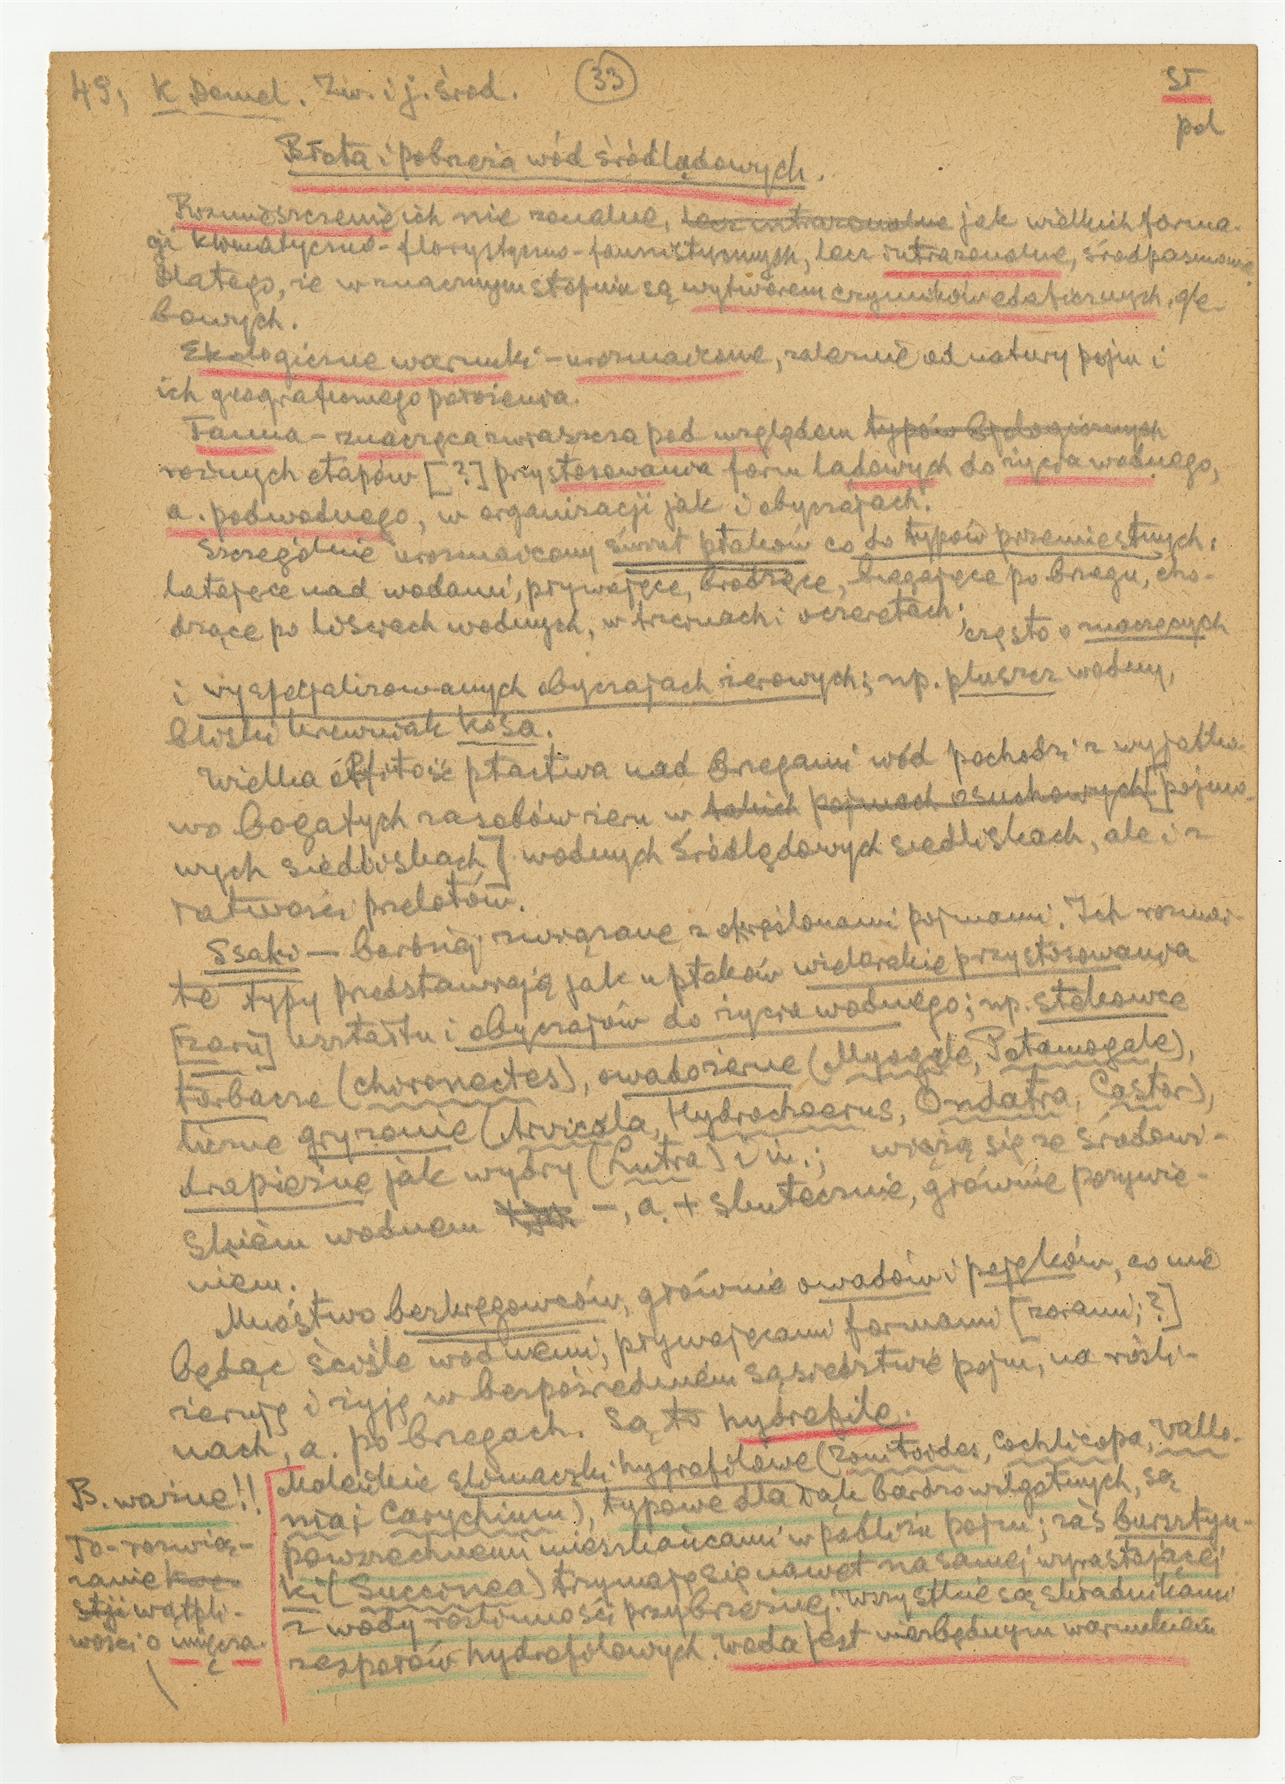 49, K Demel. Zw. i j. środ. 33 ST
pol
Błota i pobrzeża wód śródlądowych.
Rozmieszczenie ich nie zonalne, lecz intrazonalne jak wielkich forma-
cji klimatyczno-florystyczno-faunistycznych, lecz intrazonalne, śródpasmowe
Dlatego, że w znacznym stopniu są wytworem czynników edaficznych, gle-
bowych.
Ekologiczne warunki - urozmaicone, zależnie od natury pojm i
ich geograficznego położenia.
Fauna - znacząca zwłaszcza pod względem typów ekologicznych
różnych etapów [?] przystosowania form lądowych do życia wodnego,
a. podwodnego, w organizacji jak i obyczajach.
Szczególnie urozmaicony świat ptaków co do typów przemiestnych,
latające nad wodami, pływające, brodzące, biegające po brzegu, cho-
dzące po liściach wodnych, w trzcinach i oczeretach; często o znaczących
i wyspecjalizowanych obyczajach żerowych; np. pluszcz wodny,
bliski krewniak kosa.
Wielka obfitość ptactwa nad brzegami wód pochodzi z wyjątko-
wo bogatych zasobów żeru w takich pojmach osuchowych [pojmo-
wych siedliskach] wodnych śródlądowych siedliskach, ale i z
łatwości przelotów.
Ssaki - bardziej związane z określonymi pojmami. Ich rozmai-
te typy przedstawiają jak u ptaków wielorakie przystosowania
[zoru] kształtu i obyczajów do życia wodnego; np. stekowce
torbacze (chironectes), owadożerne (Myogale, Potamogale),
liczne gryzonie (Arvicola, Hydrochoerus, Ondatra, Castor),
drapieżne jak wydry (Lutra) i in.; wiążą się ze środowi-
skiem wodnem -, a. + skutecznie, głównie pożywie-
niem.
Mnóstwo bezkręgowców, głównie owadów i pająków, co nie
będąc ściśle wodnemi, pływającemi formami [zorami; ?]
żerują i żyją w bezpośredniem sąsiedztwie pojm, na rośli-
nach, a. po brzegach. Są to hydrofile.
Maleńkie ślimaczki hygrofilowe (Zonitoides, Cochlicopa, Vallo-
nia i Carychium), typowe dla łąk bardzo wilgotnych, są
powszechnemi mieszkańcami w pobliżu pojm; zaś bursztyn-
ki (Succinea) trzymają się nawet na samej wyrastającej
z wody roślinności przybrzeżnej. Wszystkie są składnikami
zespołów hydrofilowych. Woda jest niezbędnym warunkiem
B. ważne!!
To - rozwią-
zanie kwe-
stji wątpli-
wości o